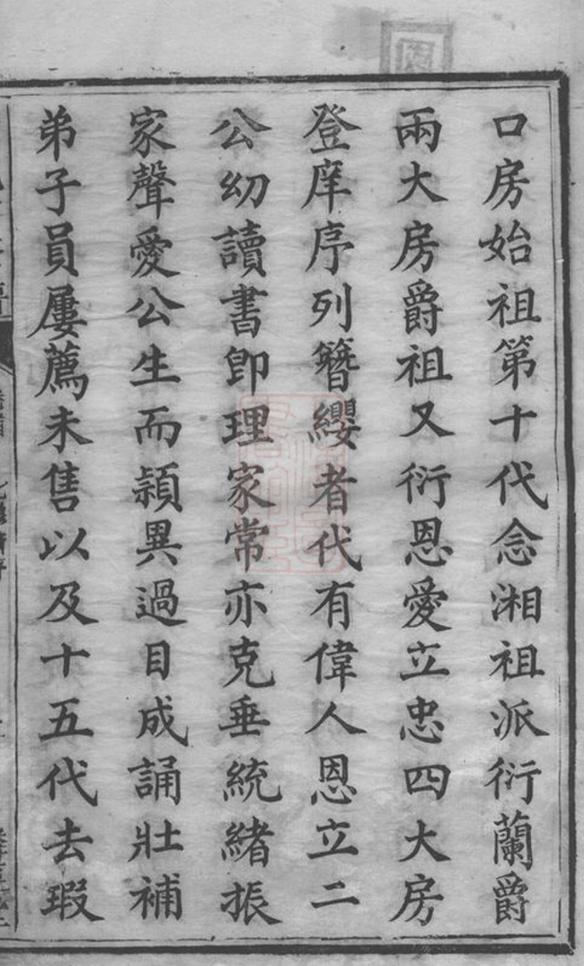 口房始祖第十代念湘祖派衍蘭爵
兩大房爵祖又衍恩愛立忠四大房
登庠序列簪纓者代有偉人恩立二
公幼讀書卽理家常亦克垂統緒振
家聲愛公生而穎異過目成誦壯補
弟子員屢薦未售以及十五代去瑕